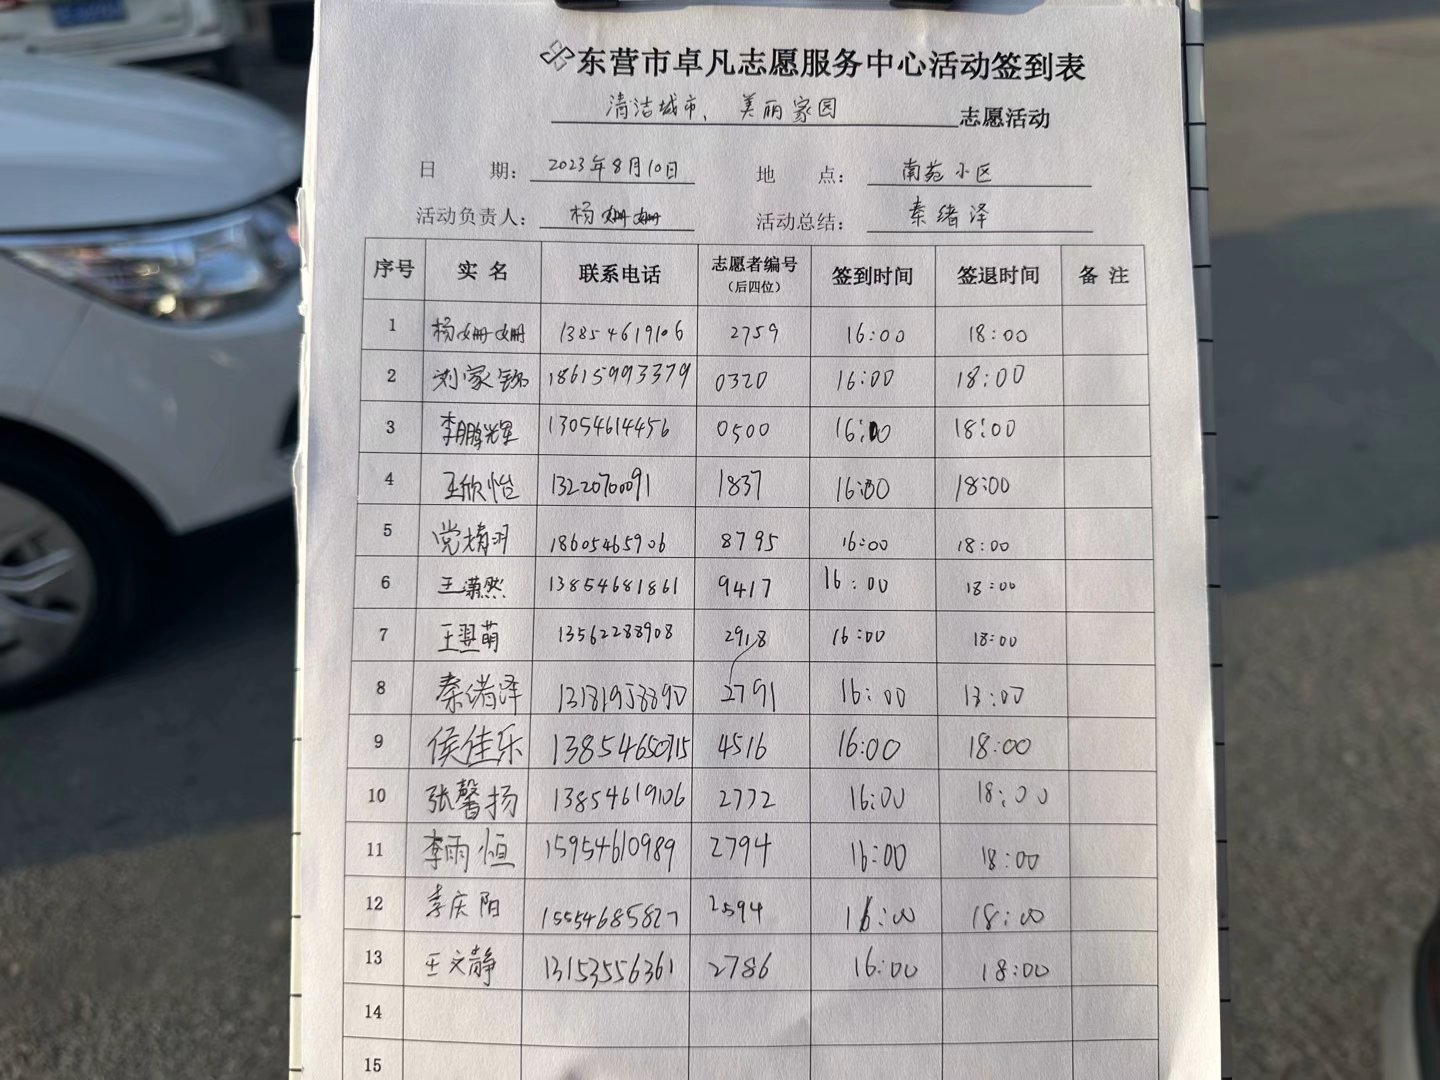 东营市卓凡志愿服务中心活动签到表
清洁城市、美丽家园 志愿活动
日 期: 2023年8月10日 地 点: 南苑小区
活动负责人: 杨姗姗 活动总结: 秦绪泽
序号 实名 联系电话 志愿者编号(后四位) 签到时间 签退时间 备注
1 杨姗姗 13854619106 2759 16:00 18:00
2 刘家铭 18615993379 0320 16:00 18:00
3 李鹏辉 13054614456 0500 16:00 18:00
4 王欣怡 13220700091 1837 16:00 18:00
5 党婧羽 18605465906 8795 16:00 18:00
6 王潇然 13854681861 9417 16:00 18:00
7 王翌萌 13562288908 2918 16:00 18:00
8 秦绪泽 13181958890 2791 16:00 18:00
9 侯佳乐 13854650715 4516 16:00 18:00
10 张馨扬 13854619106 2772 16:00 18:00
11 李雨恒 15954610989 2794 16:00 18:00
12 李庆阳 15554685827 2594 16:00 18:00
13 王文静 13153556361 2786 16:00 18:00
14
15